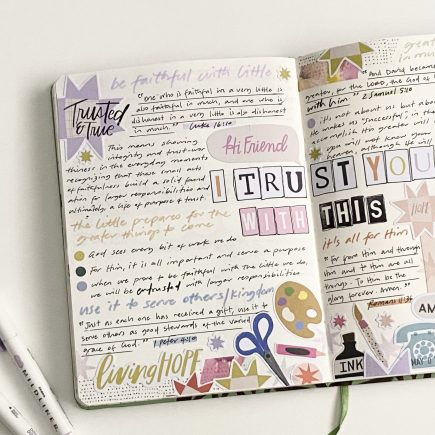 be faithful with little
Trusted
& True
"one who is faithful in a very little is
also faithful in much, and one who is
dishonest in a very little is also dishonest
in much." Luke 16:10
This means showing
integrity and trust-wor
thiness in the everyday moments
recognizing that these small acts
of faithfulness build a solid found
ation for larger responsibilities and
ultimately a life of purpose & trust.
Hi Friend
I TRUST YOU
WITH
THIS
the little prepares for the
greater things to come
God sees every bit of work we do
For Him, it is all important and serve a purpose
when we prove to be faithful with the little we do,
we will be entrusted with larger responsibilities
use it to serve others/kingdom
"Just as each one has received a gift, use it to
serve others as good stewards of the varied
grace of God." 1 Peter 4:10
living HOPE
greater
in mus
"And David became
greater, for the LORD, the God
with him." 2 Samuel 5:10
it's not about us but abou
He makes us "successful" in th
accomplish His greater will
you will not know your
however, although He will
it's all for Him
"For from Him and through
Him and to Him are all
things. To Him be the
glory forever. Amen."
Romans 11:36
INK
AM